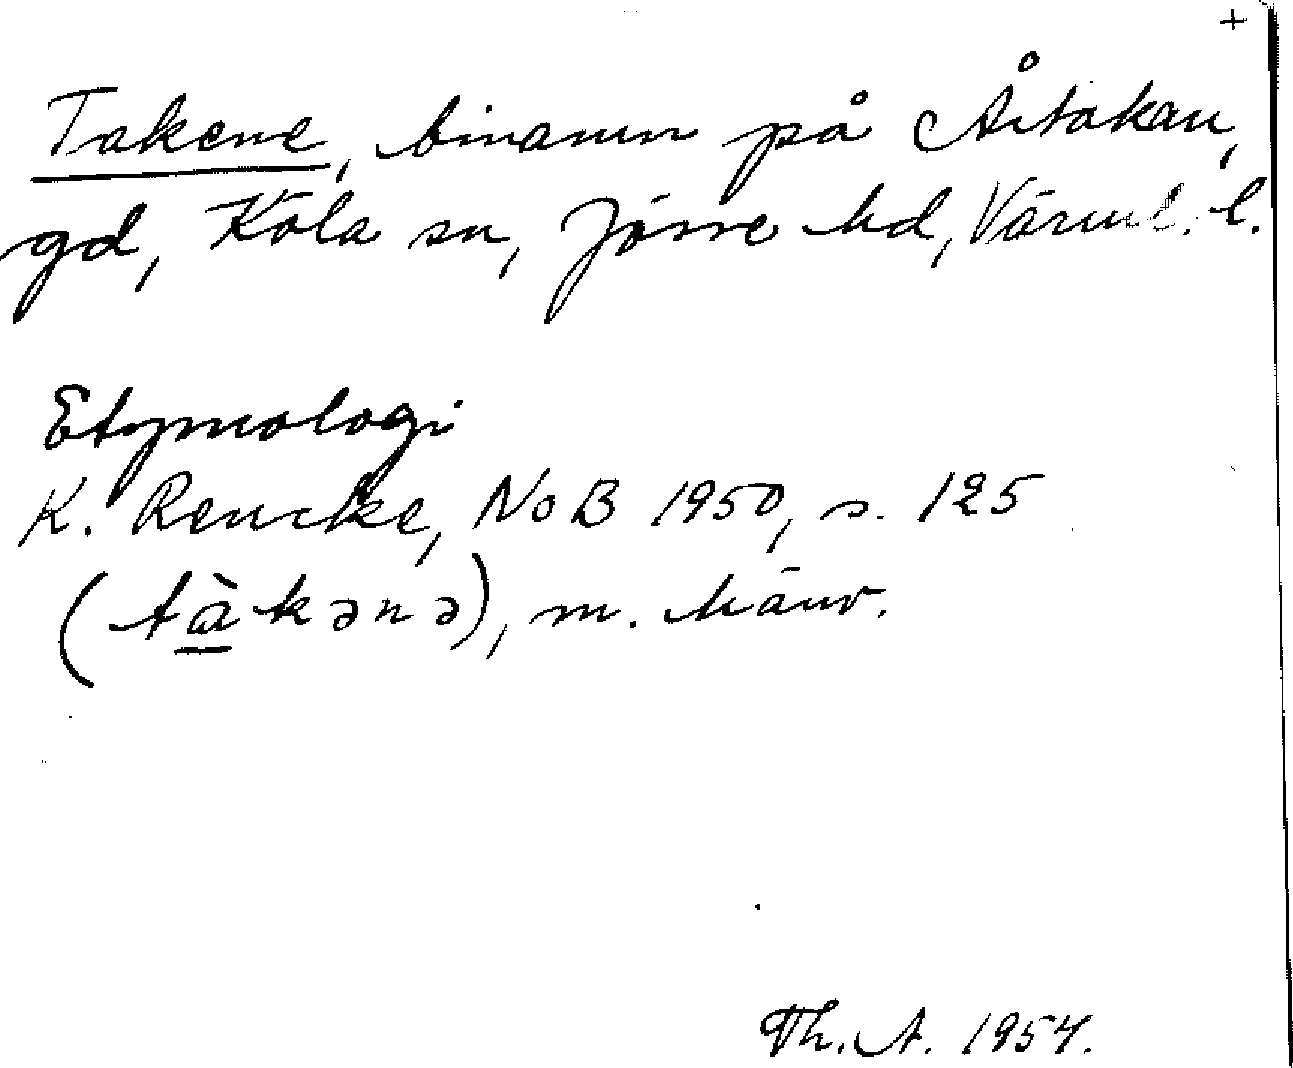 +
Takene, binamn på Åstakan,
gd, Köla sn, Jösse hd, Värml. l.
Etymologi
K. Rencke, NoB 1950, s. 125
(tàkənə), m. hänv.
Th. A. 1954.